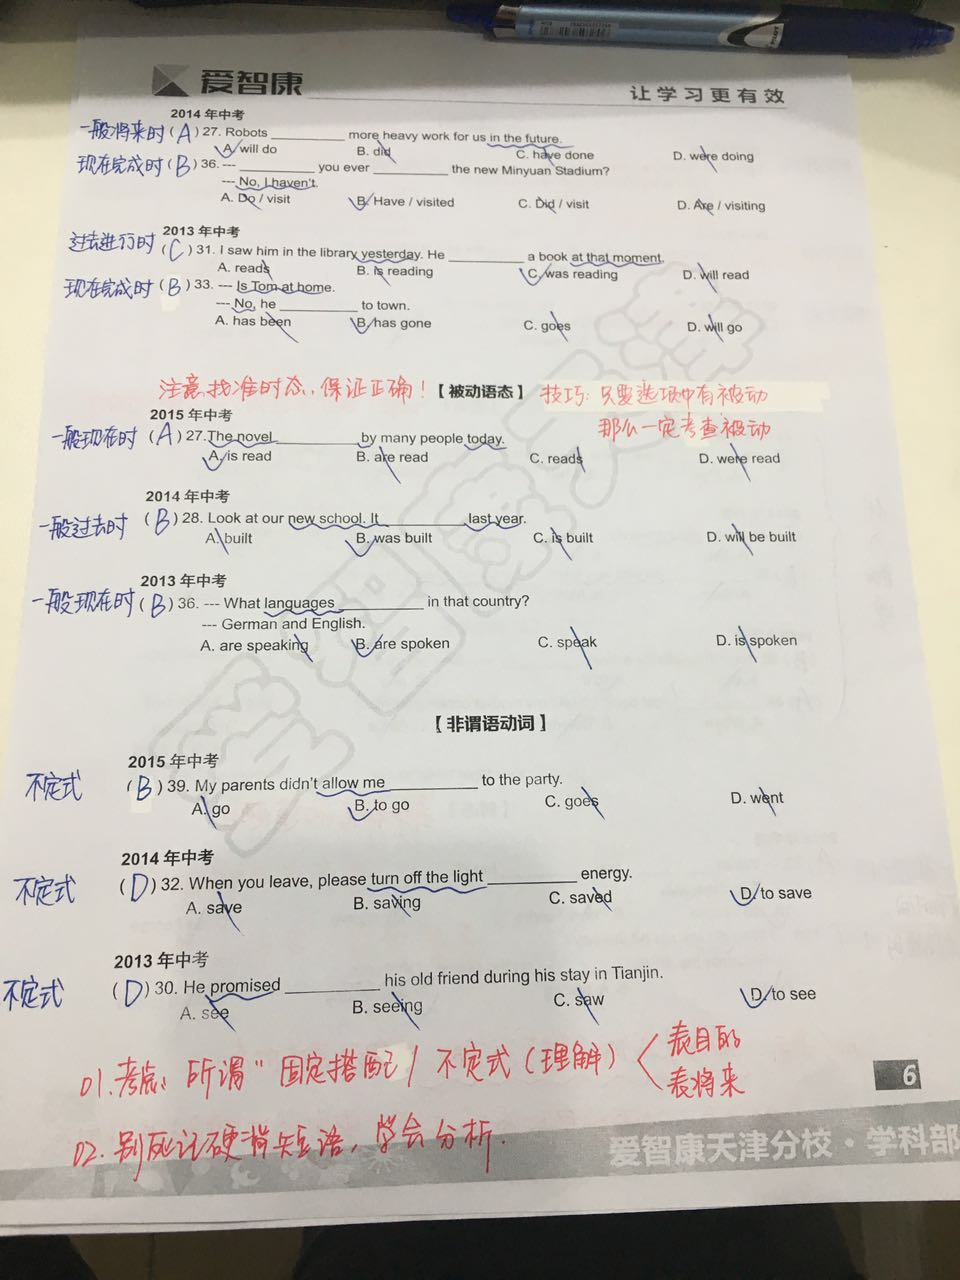 爱智康
让学习更有效
2014 年中考
一般将来时 (A) 27. Robots ________ more heavy work for us in the future.
A. will do B. did C. have done D. were doing
现在完成时 (B) 36. --- ________ you ever ________ the new Minyuan Stadium?
--- No, I haven't.
A. Do / visit B. Have / visited C. Did / visit D. Are / visiting
2013 年中考
过去进行时 (C) 31. I saw him in the library yesterday. He ________ a book at that moment.
A. reads B. is reading C. was reading D. will read
现在完成时 (B) 33. --- Is Tom at home.
--- No, he ________ to town.
A. has been B. has gone C. goes D. will go
注意找准时态，保证正确！【被动语态】 技巧: 只要选项中有被动
那么一定考查被动
2015 年中考
一般现在时 (A) 27.The novel ________ by many people today.
A. is read B. are read C. reads D. were read
2014 年中考
一般过去时 (B) 28. Look at our new school. It ________ last year.
A. built B. was built C. is built D. will be built
2013 年中考
一般现在时 (B) 36. --- What languages ________ in that country?
--- German and English.
A. are speaking B. are spoken C. speak D. is spoken
【非谓语动词】
2015 年中考
不定式 (B) 39. My parents didn't allow me ________ to the party.
A. go B. to go C. goes D. went
2014 年中考
不定式 (D) 32. When you leave, please turn off the light ________ energy.
A. save B. saving C. saved D. to save
2013 年中考
不定式 (D) 30. He promised ________ his old friend during his stay in Tianjin.
A. see B. seeing C. saw D. to see
01. 考点: 所谓"固定搭配/ 不定式（理解） 表目的
表将来
6
02. 别死记硬背短语，学会分析.
爱智康天津分校·学科部